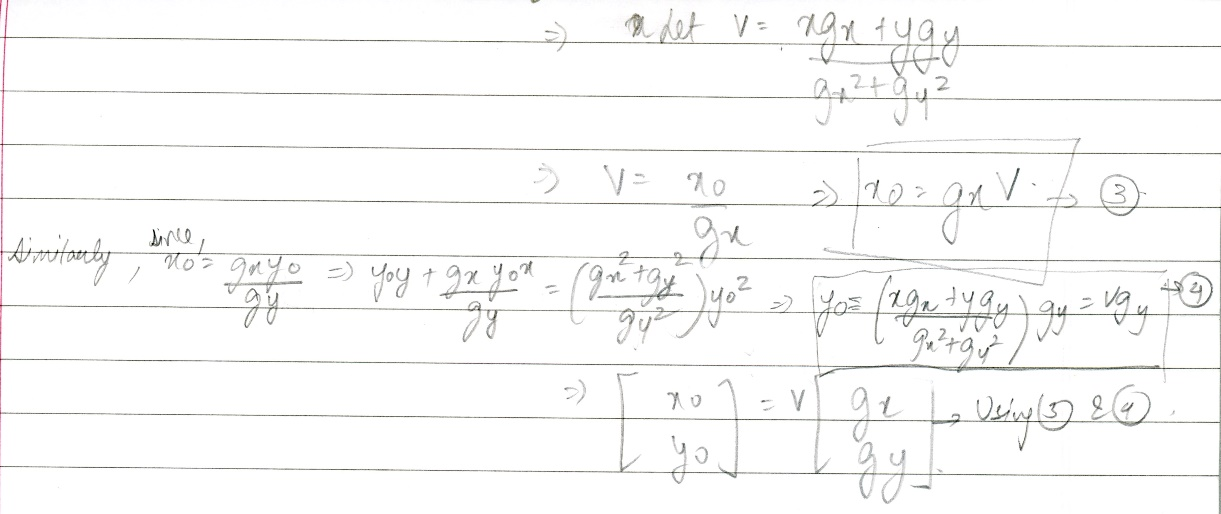 ⇒ Let V = (xgx + ygy) / (gx² + gy²)
⇒ V = x0 / gx ⇒ x0 = gx V → ③
Similarly, since, x0 = gx y0 / gy ⇒ y0y + (gx y0x) / gy = ((gx² + gy²) / gy²) y0² ⇒ y0 = ((xgx + ygy) / (gx² + gy²)) gy = vgy → ④
⇒ [x0 y0] = V [gx gy] → Using ③ & ④.